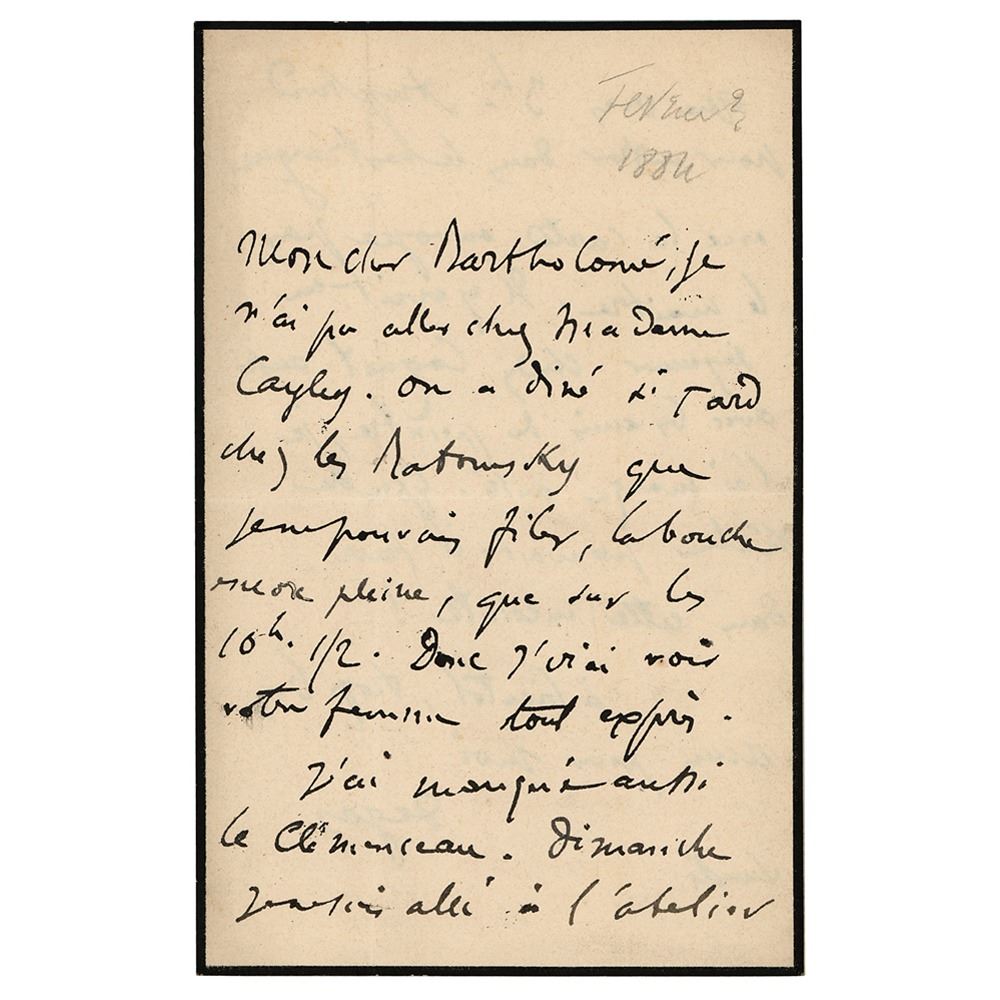 Fevrier
1884
Mon cher Bartholomé, je
n'ai pu aller chez Madame
Cayley. On a diné si tard
chez les Ratomsky que
je ne pouvais filer, la bouche
encore pleine, que sur les
10h. 1/2. Donc j'irai voir
votre femme tout exprès.
J'ai manqué aussi
le Clémenceau. Dimanche
je suis allé à l'atelier